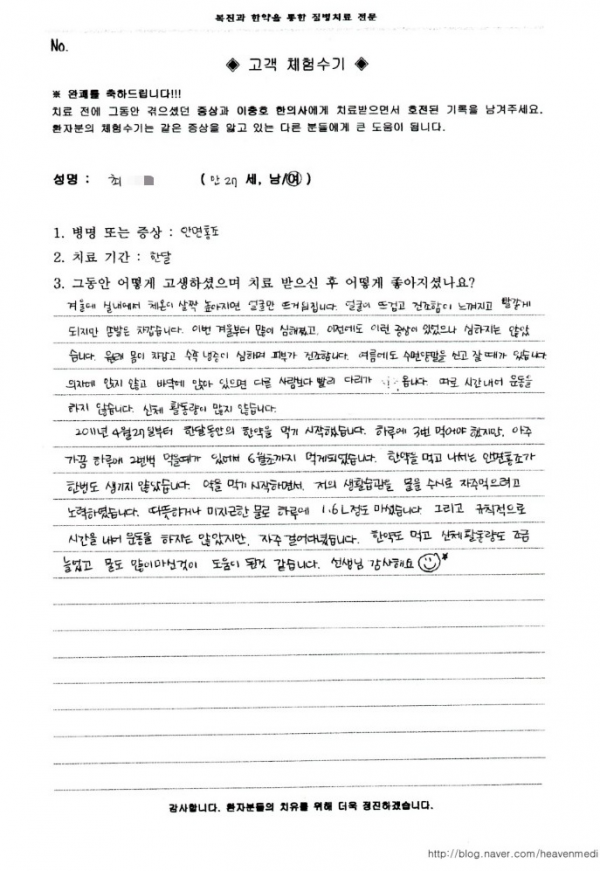 복진과 한약을 통한 질병치료 전문
No.
◈ 고객 체험수기 ◈
※ 완쾌를 축하드립니다!!!
치료 전에 그동안 겪으셨던 증상과 이충호 한의사에게 치료받으면서 호전된 기록을 남겨주세요.
환자분의 체험수기는 같은 증상을 앓고 있는 다른 분들에게 큰 도움이 됩니다.
성명 : 최 ( 만 27 세, 남/여 )
1. 병명 또는 증상 : 안면홍조
2. 치료 기간 : 한달
3. 그동안 어떻게 고생하셨으며 치료 받으신 후 어떻게 좋아지셨나요?
겨울에 실내에서 체온이 살짝 높아지면 얼굴만 뜨거워집니다. 얼굴이 뜨겁고 건조함이 느껴지고 빨갛게
되지만 손발은 차갑습니다. 이번 겨울부터 많이 심해졌고, 이전에도 이런 증상이 있었으나 심하지는 않았
습니다. 원래 몸이 차갑고 수족냉증이 심하며 피부가 건조합니다. 여름에도 수면양말을 신고 잘 때가 있습니다
의자에 앉지 않고 바닥에 앉아 있으면 다른 사람보다 빨리 다리가 옵니다. 따로 시간내어 운동을
하지 않습니다. 신체 활동량이 많지 않습니다.
2011년 4월 27일부터 한달동안의 한약을 먹기 시작했습니다. 하루에 3번 먹어야 했지만, 아주
가끔 하루에 2번씩 먹을때가 있어서 6월초까지 먹게되었습니다. 한약을 먹고 나서는 안면홍조가
한번도 생기지 않았습니다. 약을 먹기 시작하면서, 저의 생활습관은 물을 수시로 자주먹으려고
노력하였습니다. 따뜻하거나 미지근한 물로 하루에 1.6L정도 마셨습니다. 그리고 규칙적으로
시간을 내어 운동을 하지는 않았지만, 자주 걸어다녔습니다. 한약도 먹고 신체활동량도 조금
늘었고 물도 많이마신것이 도움이 된것 같습니다. 선생님 감사해요
감사합니다. 환자분들의 치유를 위해 더욱 정진하겠습니다.
http://blog.naver.com/heavenmedi